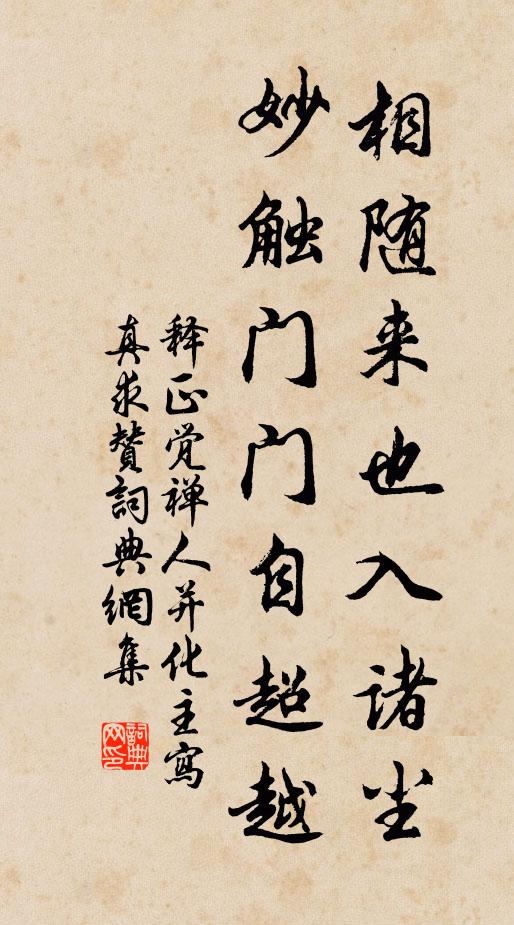 相随来也入诸尘
妙触门门自超越
释正觉禅人并化主寫
真求贊詞典網集
詞典網印